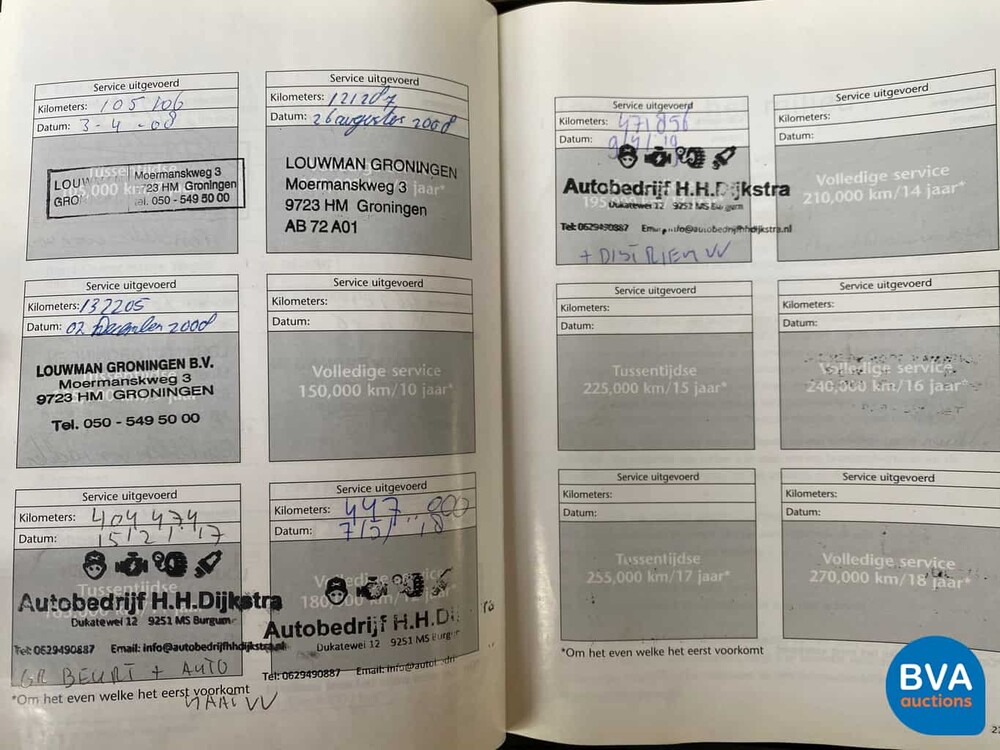 Service uitgevoerd
Kilometers: 105 106
Datum: 3-4-08
LOUW
GRO
Moermanskweg 3
9723 HM Groningen
Tel. 050 - 549 50 00
Service uitgevoerd
Kilometers: 121287
Datum: 26 augustus 2008
LOUWMAN GRONINGEN
Moermanskweg 3
9723 HM Groningen
AB 72 A01
jaar*
Service uitgevoerd
Kilometers: 137205
Datum: 02 December 2008
LOUWMAN GRONINGEN B.V.
Moermanskweg 3
9723 HM GRONINGEN
Tel. 050 - 549 50 00
Service uitgevoerd
Kilometers:
Datum:
Volledige service
150,000 km/10 jaar*
Service uitgevoerd
Kilometers: 404 474
Datum: 15/2/17
Tussentijdse
Autobedrijf H.H.Dijkstra
Dukatewei 12 9251 MS Burgum
Tel: 0629490887 Email: info@autobedrijfhhdijkstra.nl
GR BEURT + AUTO
*Om het even welke het eerst voorkomt
Service uitgevoerd
Kilometers: 447 800
Datum: 7/5/18
Autobedrijf H.H.Di
Dukatewei 12 9251 MS Burg
Tel: 0629490887 Email: info@autob
Service uitgevoerd
Kilometers: 471856
Datum:
Autobedrijf H.H.Dijkstra
Dukatewei 12 9251 MS Burgum
Tel: 0629490887 Email: info@autobedrijfhhdijkstra.nl
+ DISTRIEM VV
Service uitgevoerd
Kilometers:
Datum:
Volledige service
210,000 km/14 jaar*
Service uitgevoerd
Kilometers:
Datum:
Tussentijdse
225,000 km/15 jaar*
Service uitgevoerd
Kilometers:
Datum:
Volledige service
240,000 km/16 jaar*
Service uitgevoerd
Kilometers:
Datum:
Tussentijdse
255,000 km/17 jaar*
Service uitgevoerd
Kilometers:
Datum:
Volledige service
270,000 km/18 jaar*
*Om het even welke het eerst voorkomt
BVA
auctions